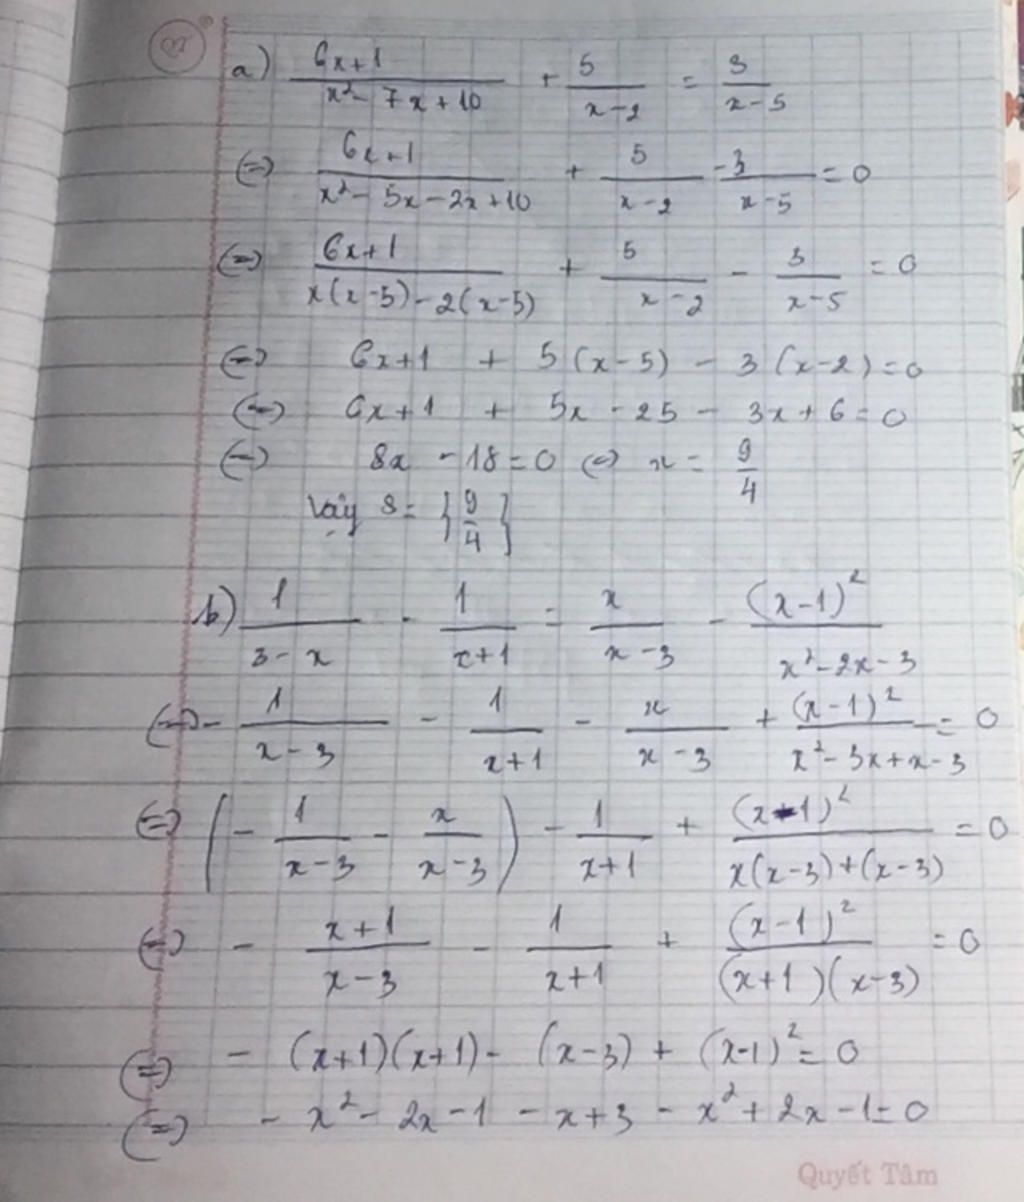 a) (6x+1)/(x²-7x+10) + 5/(x-2) = 3/(x-5)
(=) (6x+1)/(x²-5x-2x+10) + 5/(x-2) - 3/(x-5) = 0
(=) (6x+1)/(x(x-5)-2(x-5)) + 5/(x-2) - 3/(x-5) = 0
(=) 6x+1 + 5(x-5) - 3(x-2) = 0
(=) 6x+1 + 5x - 25 - 3x + 6 = 0
(=) 8x - 18 = 0 (=) x = 9/4
Vậy S = {9/4}
b) 1/(3-x) - 1/(x+1) = x/(x-3) - (x-1)²/(x²-2x-3)
(=) - 1/(x-3) - 1/(x+1) - x/(x-3) + (x-1)²/(x²-3x+x-3) = 0
(=) (- 1/(x-3) - x/(x-3)) - 1/(x+1) + (x-1)²/(x(x-3)+(x-3)) = 0
(=) - (x+1)/(x-3) - 1/(x+1) + (x-1)²/((x+1)(x-3)) = 0
(=) - (x+1)(x+1) - (x-3) + (x-1)² = 0
(=) - x² - 2x - 1 - x + 3 - x² + 2x - 1 = 0
Quyết Tâm